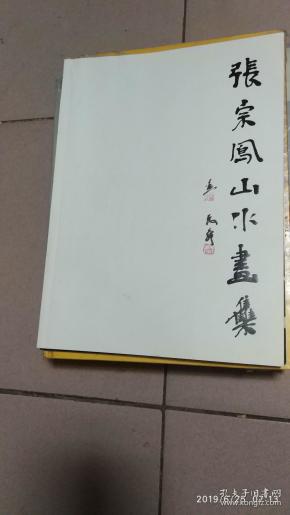 張宗鳳山水畫集
2019/6/25 02:13
孔夫子旧书网